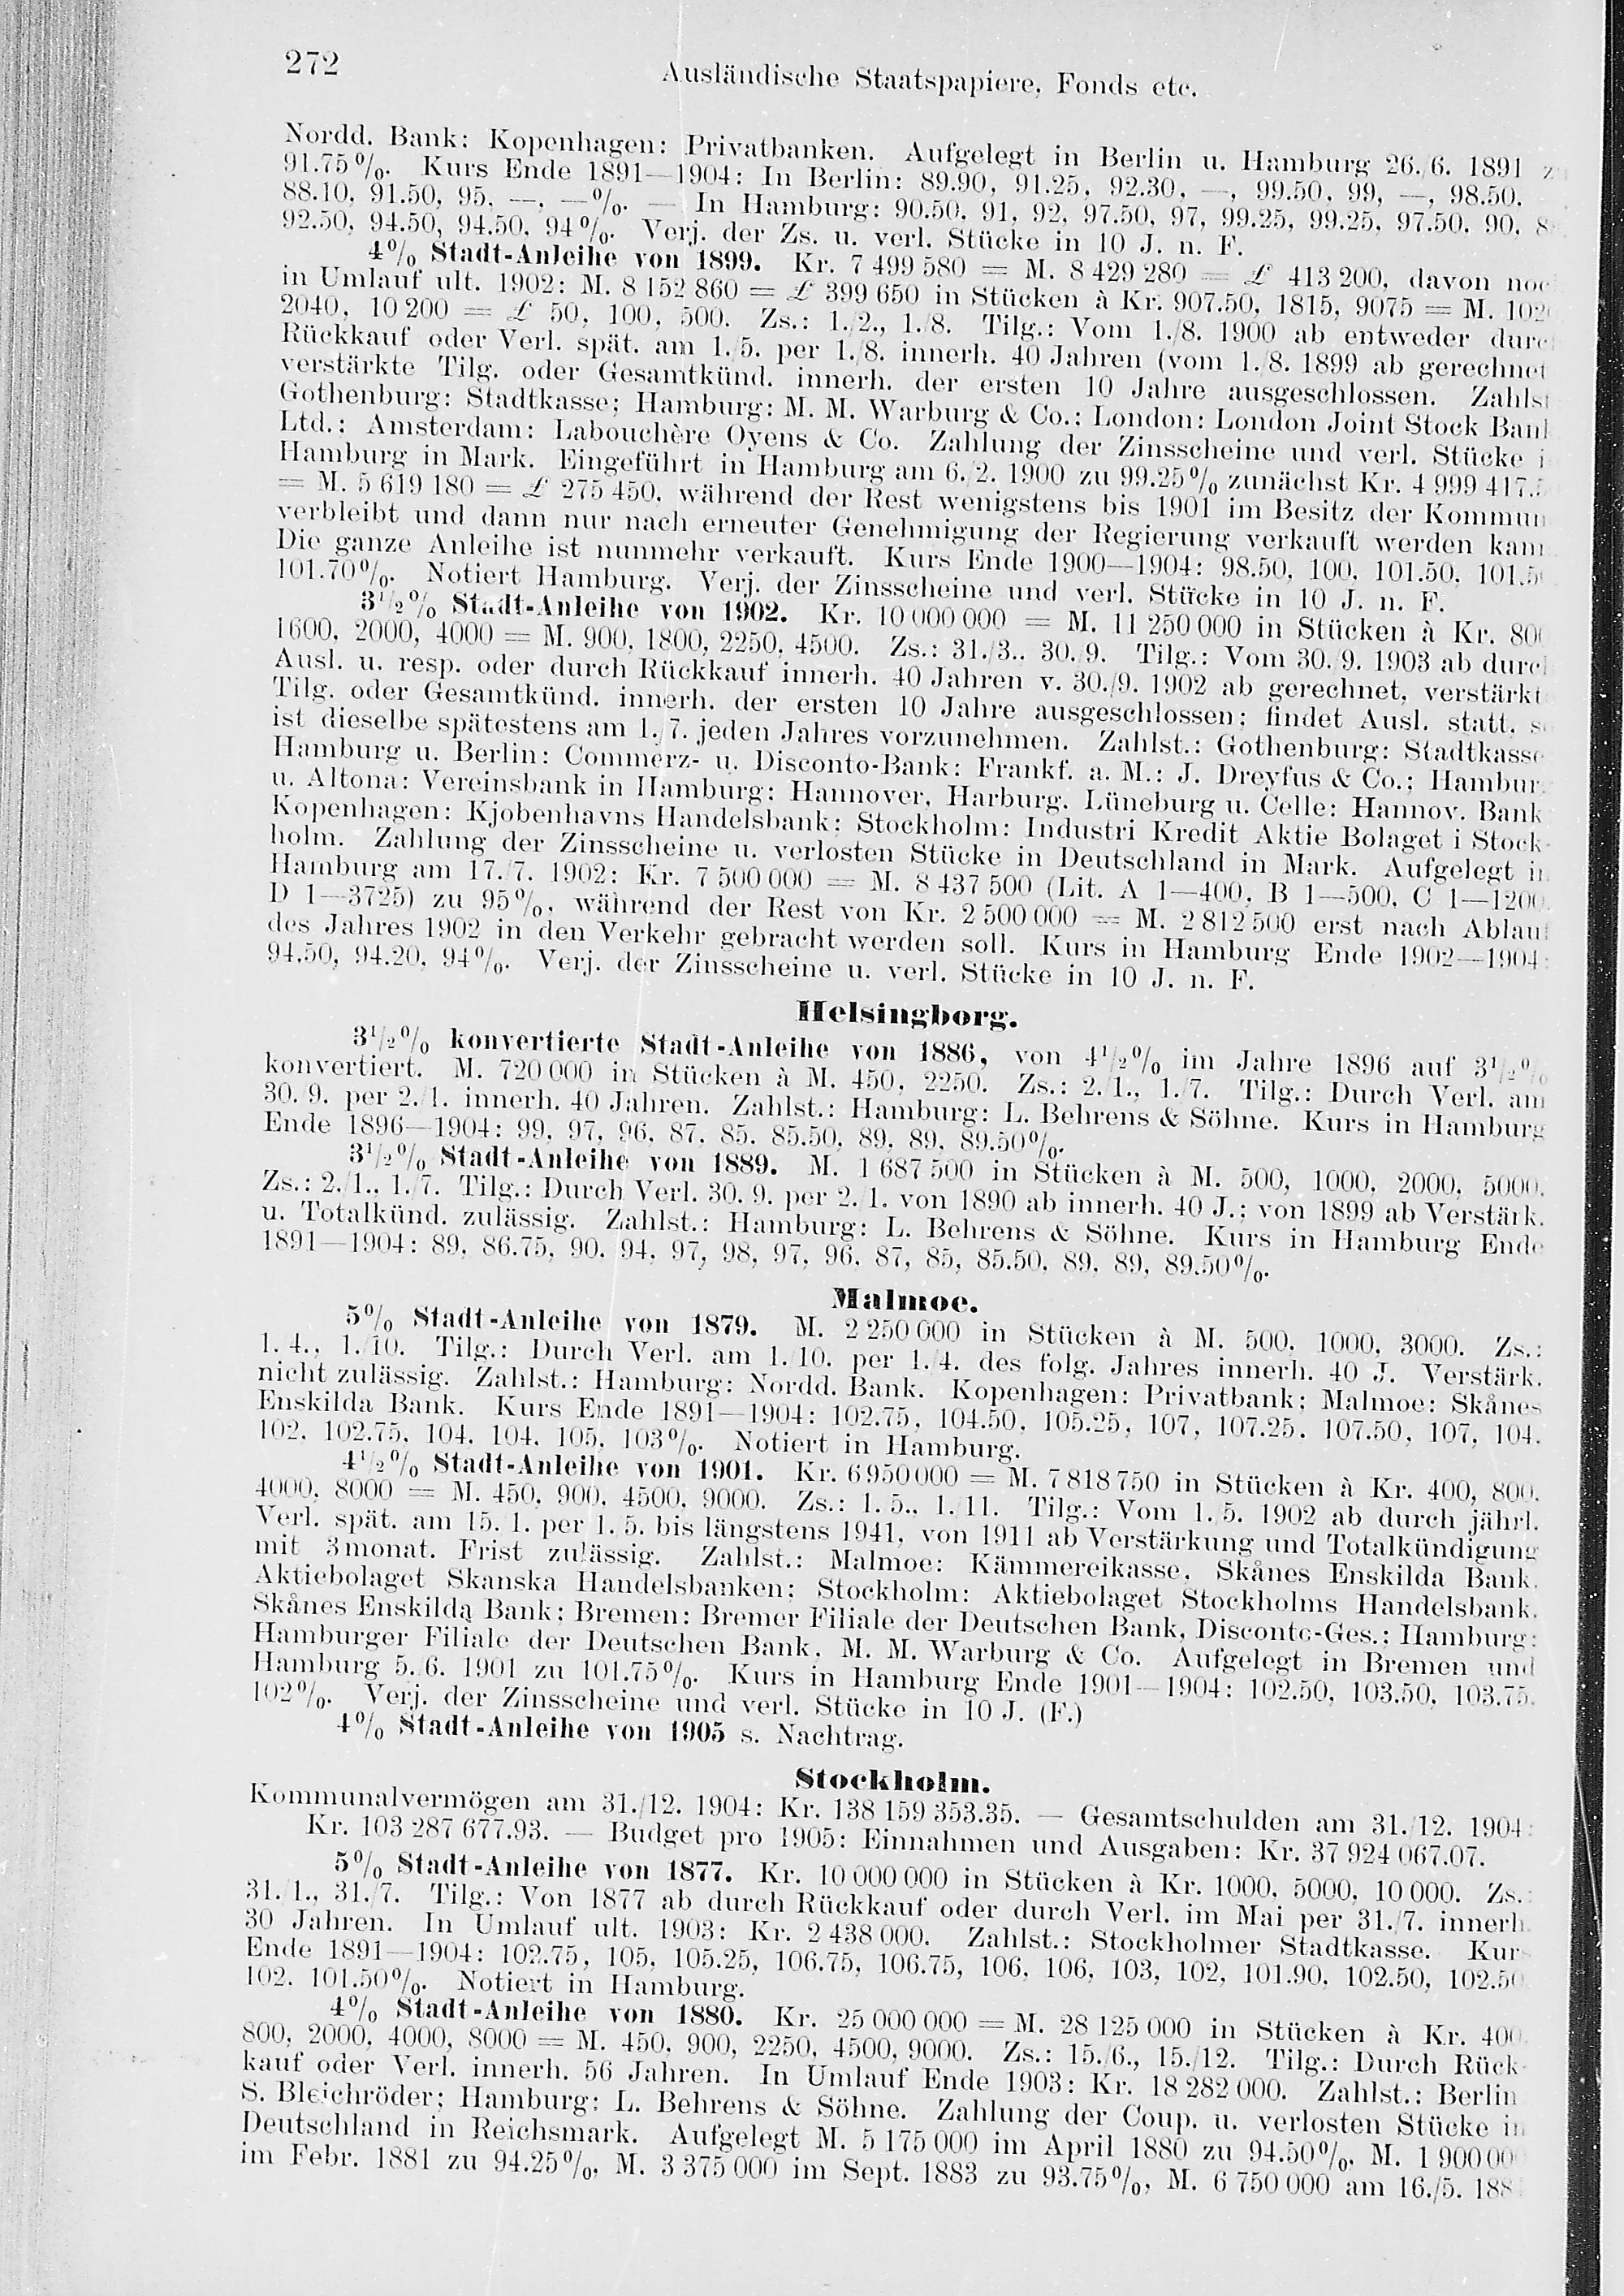 272
Ausländische Staatspapiere, Fonds etc.
Nordd. Bank: Kopenhagen: Privatbanken. Aufgelegt in Berlin u. Hamburg 26./6. 1891
91.75%. Kurs Ende 1891—1904: In Berlin: 89.90, 91.25, 92.30, —, 99.50, 99, —, 98.50.
88.10, 91.50, 95, —, —%. — In Hamburg: 90.50, 91, 92, 97.50, 97, 99.25, 99.25, 97.50, 90,
92.50, 94.50, 94.50, 94%. Verj. der Zs. u. verl. Stücke in 10 J. n. F.
4% Stadt-Anleihe von 1899. Kr. 7 499 580 = M. 8 429 280 = £ 413 200, davon
in Umlauf ult. 1902: M. 8 152 860 = £ 399 650 in Stücken à Kr. 907.50, 1815, 9075 = M.
2040, 10 200 = £ 50, 100, 500. Zs.: 1./2., 1./8. Tilg.: Vom 1./8. 1900 ab entweder
Rückkauf oder Verl. spät. am 1./5. per 1./8. innerh. 40 Jahren (vom 1./8. 1899 ab gerechnet
verstärkte Tilg. oder Gesamtkünd. innerh. der ersten 10 Jahre ausgeschlossen. Zahlst
Gothenburg: Stadtkasse; Hamburg: M. M. Warburg & Co.; London: London Joint Stock
Ltd.; Amsterdam: Labouchère Oyens & Co. Zahlung der Zinsscheine und verl. Stücke
Hamburg in Mark. Eingeführt in Hamburg am 6./2. 1900 zu 99.25% zunächst Kr. 4 999 417.5
= M. 5 619 180 = £ 275 450, während der Rest wenigstens bis 1901 im Besitz der
verbleibt und dann nur nach erneuter Genehmigung der Regierung verkauft werden
Die ganze Anleihe ist nunmehr verkauft. Kurs Ende 1900—1904: 98.50, 100, 101.50,
101.70%. Notiert Hamburg. Verj. der Zinsscheine und verl. Stücke in 10 J. n. F.
3½% Stadt-Anleihe von 1902. Kr. 10 000 000 = M. 11 250 000 in Stücken à Kr.
1600, 2000, 4000 = M. 900, 1800, 2250, 4500. Zs.: 31./3., 30./9. Tilg.: Vom 30./9. 1903 ab
Ausl. u. resp. oder durch Rückkauf innerh. 40 Jahren v. 30./9. 1902 ab gerechnet, verstärkt
Tilg. oder Gesamtkünd. innerh. der ersten 10 Jahre ausgeschlossen; findet Ausl. statt,
ist dieselbe spätestens am 1./7. jeden Jahres vorzunehmen. Zahlst.: Gothenburg: Stadtkasse
Hamburg u. Berlin: Commerz- u. Disconto-Bank; Frankf. a. M.: J. Dreyfus & Co.; Hambur
u. Altona: Vereinsbank in Hamburg; Hannover, Harburg, Lüneburg u. Celle: Hannov. Bank
Kopenhagen: Kjobenhavns Handelsbank; Stockholm: Industri Kredit Aktie Bolaget i Stock-
holm. Zahlung der Zinsscheine u. verlosten Stücke in Deutschland in Mark. Aufgelegt in
Hamburg am 17./7. 1902: Kr. 7 500 000 = M. 8 437 500 (Lit. A 1—400, B 1—500, C 1—1200,
D 1—3725) zu 95%, während der Rest von Kr. 2 500 000 = M. 2 812 500 erst nach Ablauf
des Jahres 1902 in den Verkehr gebracht werden soll. Kurs in Hamburg Ende 1902—1904:
94.50, 94.20, 94%. Verj. der Zinsscheine u. verl. Stücke in 10 J. n. F.
Helsingborg.
3½% konvertierte Stadt-Anleihe von 1886, von 4½% im Jahre 1896 auf 3½%
konvertiert. M. 720 000 in Stücken à M. 450, 2250. Zs.: 2./1., 1./7. Tilg.: Durch Verl. am
30./9. per 2./1. innerh. 40 Jahren. Zahlst.: Hamburg: L. Behrens & Söhne. Kurs in Hamburg
Ende 1896—1904: 99, 97, 96, 87, 85, 85.50, 89, 89, 89.50%.
3½% Stadt-Anleihe von 1889. M. 1 687 500 in Stücken à M. 500, 1000, 2000, 5000.
Zs.: 2./1., 1./7. Tilg.: Durch Verl. 30. 9. per 2./1. von 1890 ab innerh. 40 J.; von 1899 ab Verstärk.
u. Totalkünd. zulässig. Zahlst.: Hamburg: L. Behrens & Söhne. Kurs in Hamburg Ende
1891—1904: 89, 86.75, 90, 94, 97, 98, 97, 96, 87, 85, 85.50, 89, 89, 89.50%.
Malmoe.
5% Stadt-Anleihe von 1879. M. 2 250 000 in Stücken à M. 500, 1000, 3000. Zs.:
1. 4., 1./10. Tilg.: Durch Verl. am 1./10. per 1./4. des folg. Jahres innerh. 40 J. Verstärk.
nicht zulässig. Zahlst.: Hamburg: Nordd. Bank. Kopenhagen: Privatbank; Malmoe: Skånes
Enskilda Bank. Kurs Ende 1891—1904: 102.75, 104.50, 105.25, 107, 107.25, 107.50, 107, 104,
102, 102.75, 104, 104, 105, 103%. Notiert in Hamburg.
4½% Stadt-Anleihe von 1901. Kr. 6 950 000 = M. 7 818 750 in Stücken à Kr. 400, 800,
4000, 8000 = M. 450, 900, 4500, 9000. Zs.: 1. 5., 1./11. Tilg.: Vom 1./5. 1902 ab durch jährl.
Verl. spät. am 15. 1. per 1. 5. bis längstens 1941, von 1911 ab Verstärkung und Totalkündigung
mit 3monat. Frist zulässig. Zahlst.: Malmoe: Kämmereikasse, Skånes Enskilda Bank,
Aktiebolaget Skanska Handelsbanken; Stockholm: Aktiebolaget Stockholms Handelsbank,
Skånes Enskilda Bank; Bremen: Bremer Filiale der Deutschen Bank, Disconto-Ges.; Hamburg:
Hamburger Filiale der Deutschen Bank, M. M. Warburg & Co. Aufgelegt in Bremen und
Hamburg 5./6. 1901 zu 101.75%. Kurs in Hamburg Ende 1901—1904: 102.50, 103.50, 103.75,
102%. Verj. der Zinsscheine und verl. Stücke in 10 J. (F.)
4% Stadt-Anleihe von 1905 s. Nachtrag.
Stockholm.
Kommunalvermögen am 31./12. 1904: Kr. 138 159 353.35. — Gesamtschulden am 31./12. 1904:
Kr. 103 287 677.93. — Budget pro 1905: Einnahmen und Ausgaben: Kr. 37 924 067.07.
5% Stadt-Anleihe von 1877. Kr. 10 000 000 in Stücken à Kr. 1000, 5000, 10 000. Zs.:
31./1., 31./7. Tilg.: Von 1877 ab durch Rückkauf oder durch Verl. im Mai per 31./7. innerh.
30 Jahren. In Umlauf ult. 1903: Kr. 2 438 000. Zahlst.: Stockholmer Stadtkasse. Kur
Ende 1891—1904: 102.75, 105, 105.25, 106.75, 106.75, 106, 106, 103, 102, 101.90, 102.50, 102.50
102, 101.50%. Notiert in Hamburg.
4% Stadt-Anleihe von 1880. Kr. 25 000 000 = M. 28 125 000 in Stücken à Kr. 400,
800, 2000, 4000, 8000 = M. 450, 900, 2250, 4500, 9000. Zs.: 15./6., 15./12. Tilg.: Durch Rück-
kauf oder Verl. innerh. 56 Jahren. In Umlauf Ende 1903: Kr. 18 282 000. Zahlst.: Berlin
S. Bleichröder; Hamburg: L. Behrens & Söhne. Zahlung der Coup. u. verlosten Stücke in
Deutschland in Reichsmark. Aufgelegt M. 5 175 000 im April 1880 zu 94.50%, M. 1 900 00
im Febr. 1881 zu 94.25%, M. 3 375 000 im Sept. 1883 zu 93.75%, M. 6 750 000 am 16./5. 188